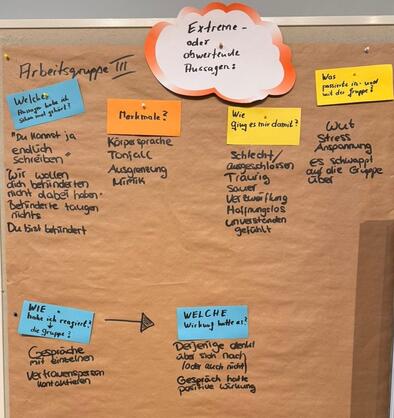 Extreme-
oder
abwertende
Aussagen:
Arbeitsgruppe III
Welche
Aussagen habe ich
schon mal gehört?
"Du kannst ja
endlich
schreiben"
Wir wollen
dich behinderten
nicht dabei haben"
Behinderte taugen
nichts
Du bist behindert
Merkmale?
Körpersprache
Tonfall
Ausgrenzung
Mimik
Wie
ging es mir damit?
Schlecht/
ausgeschlossen
Traurig
Sauer
Verzweiflung
Hoffnungslos
unverstanden
gefühlt
Was
passierte in- und
mit der Gruppe?
Wut
Stress
Anspannung
es schwappt
auf die Gruppe
über
WIE
habe ich reagiert?
die Gruppe?
Gespräche
mit einzelnen
Vertrauensperson
kontaktieren
WELCHE
Wirkung hatte es?
Derjenige denkt
über sich nach
(oder auch nicht)
Gespräch hatte
positive Wirkung